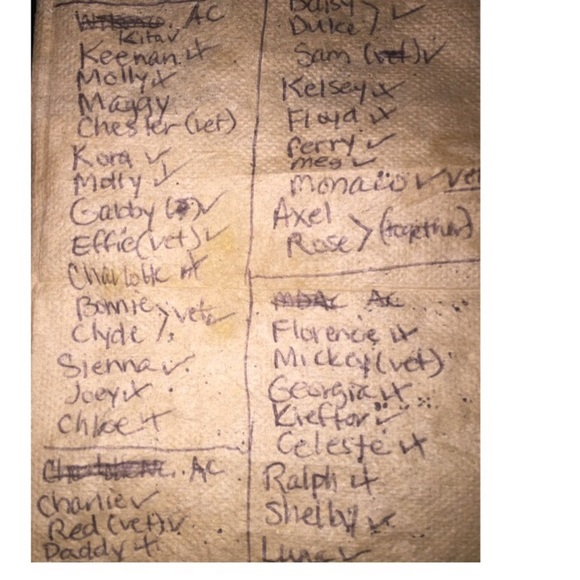 AC
Kita ✓
Keenan ✓+
Molly ✓+
Maggy
Chester (vet)
Kora ✓
Molly ✓
Gabby ✓
Effie (vet) ✓
Charlotte ✓+
Bonnie
Clyde > vet ✓
Sienna ✓
Joey ✓+
Chloe ✓+
AC
Charlie ✓
Red (vet) ✓
Daddy ✓+
Daisy
Dulce > ✓
Sam ✓
Kelsey ✓+
Floyd ✓+
Perry ✓
meg ✓
Monaco ✓ vet
Axel
Rose > (together)
AC
Florence ✓+
Mickey (vet)
Georgia ✓+
✓
Celeste ✓+
Ralph ✓+
Shelby ✓
Luna ✓